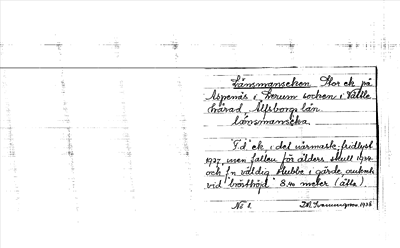 Länsmanseken. Stor ek på
Aspenäs i Lerum socken i Vättle
härad, Älfsborgs län.
länsmanseka.
T.d. ek, i det närmaste fridlyst
1927, men fallen för ålders skull 1934.
och f.n väldig stubbe i gärde, omkrets
vid "brösthöjd" 8,40 meter (åtta).
No 1. 1938